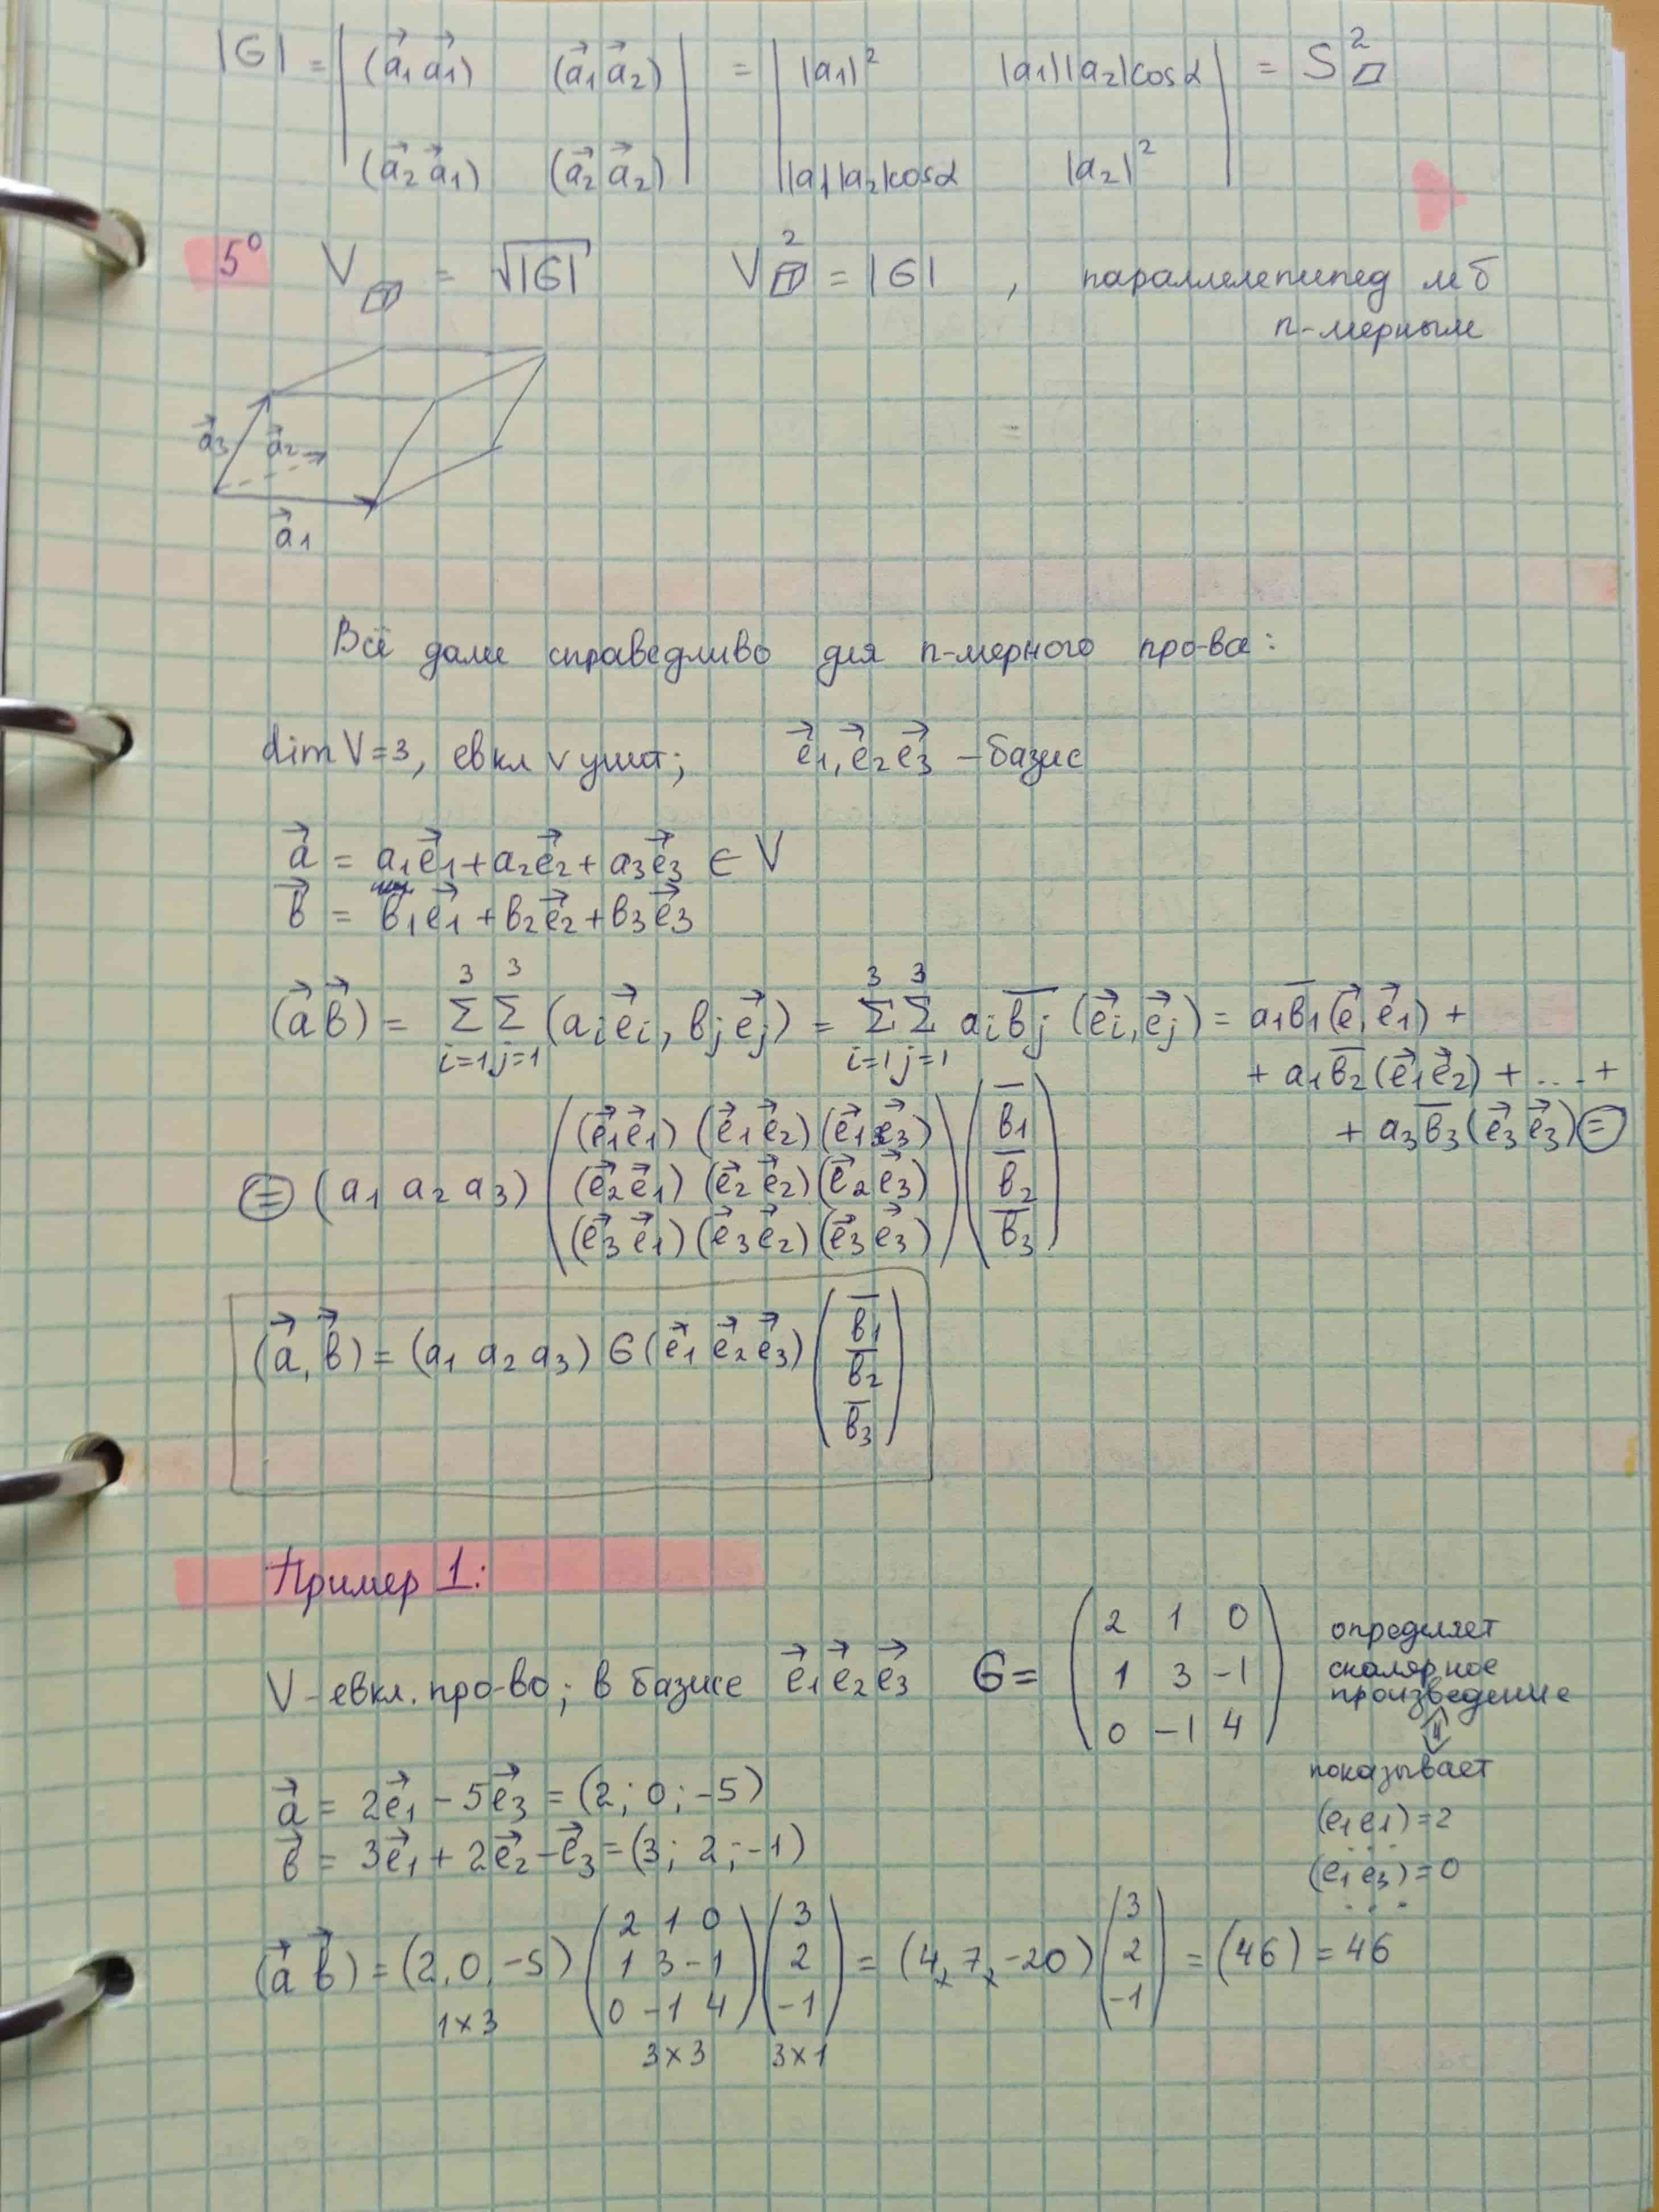 |G| = | (a⃗1 a⃗1) (a⃗1 a⃗2) | = | |a1|² |a1||a2|cosα | = S²▱
| (a⃗2 a⃗1) (a⃗2 a⃗2) | | |a1||a2|cosα |a2|² |
5° V = √|G| V² = |G| , параллелепипед м б
n-мерным
a⃗3 a⃗2
a⃗1
Всё далее справедливо для n-мерного про-ва:
dim V=3, евкл v унит; e⃗1, e⃗2 e⃗3 – базис
a⃗ = a1e⃗1 + a2e⃗2 + a3e⃗3 ∈ V
в⃗ = в1e⃗1 + в2e⃗2 + в3e⃗3
(a⃗ в⃗) = Σ(i=1..3) Σ(j=1..3) (ai e⃗i, вj e⃗j) = Σ(i=1..3) Σ(j=1..3) ai в̅j (e⃗i, e⃗j) = a1в̅1(e⃗, e⃗1) +
+ a1в̅2(e⃗1e⃗2) + ... +
+ a3в̅3(e⃗3 e⃗3) =
= (a1 a2 a3) ( (e⃗1e⃗1) (e⃗1e⃗2) (e⃗1e⃗3) ) ( в̅1 )
( (e⃗2e⃗1) (e⃗2e⃗2) (e⃗2e⃗3) ) ( в̅2 )
( (e⃗3e⃗1) (e⃗3e⃗2) (e⃗3e⃗3) ) ( в̅3 )
(a⃗, в⃗) = (a1 a2 a3) G(e⃗1 e⃗2 e⃗3) ( в̅1
в̅2
в̅3 )
Пример 1:
V – евкл. про-во; в базисе e⃗1 e⃗2 e⃗3 G = ( 2 1 0
1 3 -1
0 -1 4 )
определяет
скалярное
произведение
⇕
показывает
(e1 e1) = 2
. . .
(e1 e3) = 0
. . .
a⃗ = 2e⃗1 - 5e⃗3 = (2; 0; -5)
в⃗ = 3e⃗1 + 2e⃗2 - e⃗3 = (3; 2; -1)
(a⃗ в⃗) = (2, 0, -5) ( 2 1 0 ) ( 3 ) = (4, 7, -20) ( 3 ) = (46) = 46
( 1 3 -1 ) ( 2 ) ( 2 )
( 0 -1 4 ) ( -1 ) ( -1 )
1×3 3×3 3×1